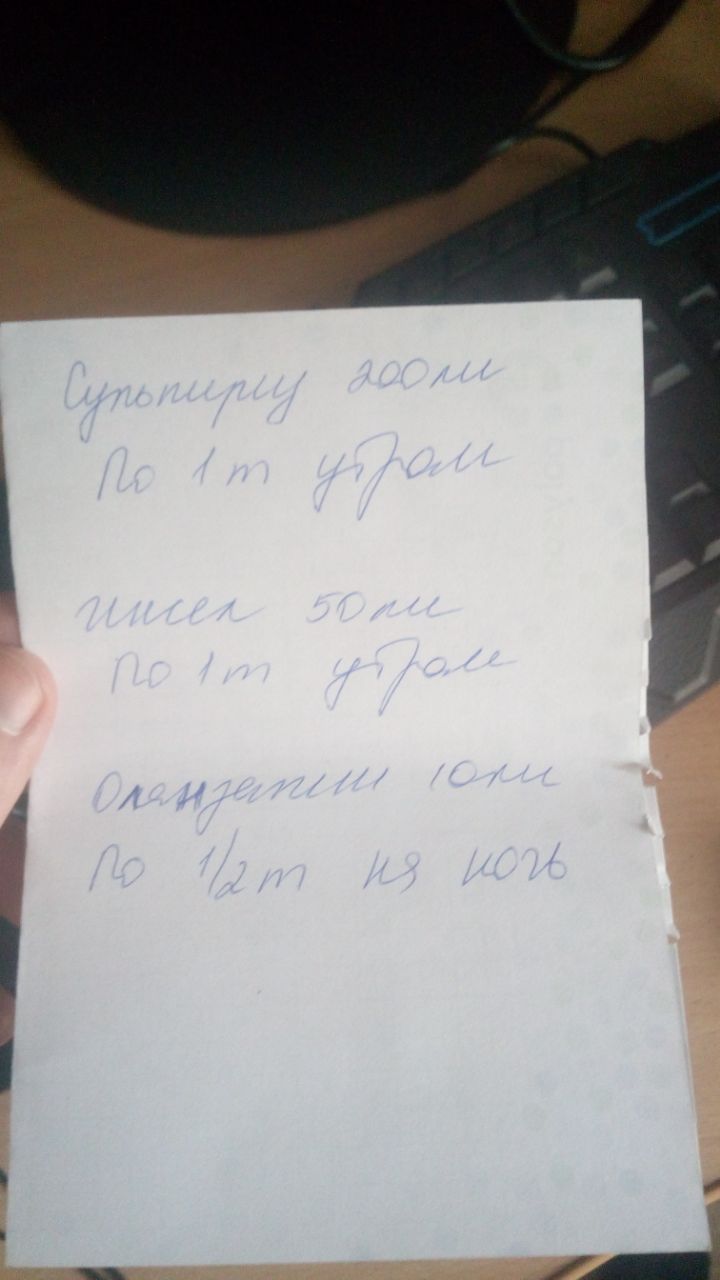 Сульпирид 200мг
По 1т утром
50мг
По 1т утром
Оланзапин 10мг
По 1/2т на ночь